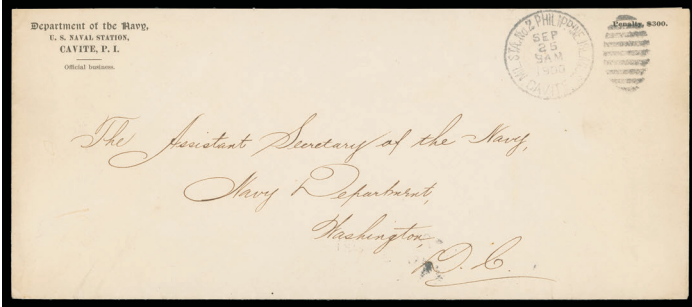 Department of the Navy,
U. S. NAVAL STATION,
CAVITE, P. I.
Official business.
MIL. STA. No. 2 PHILIPPINE
SEP
25
9 AM
CAVITE
Penalty, $300.
The Assistant Secretary of the Navy,
Navy Department,
Washington,
D. C.